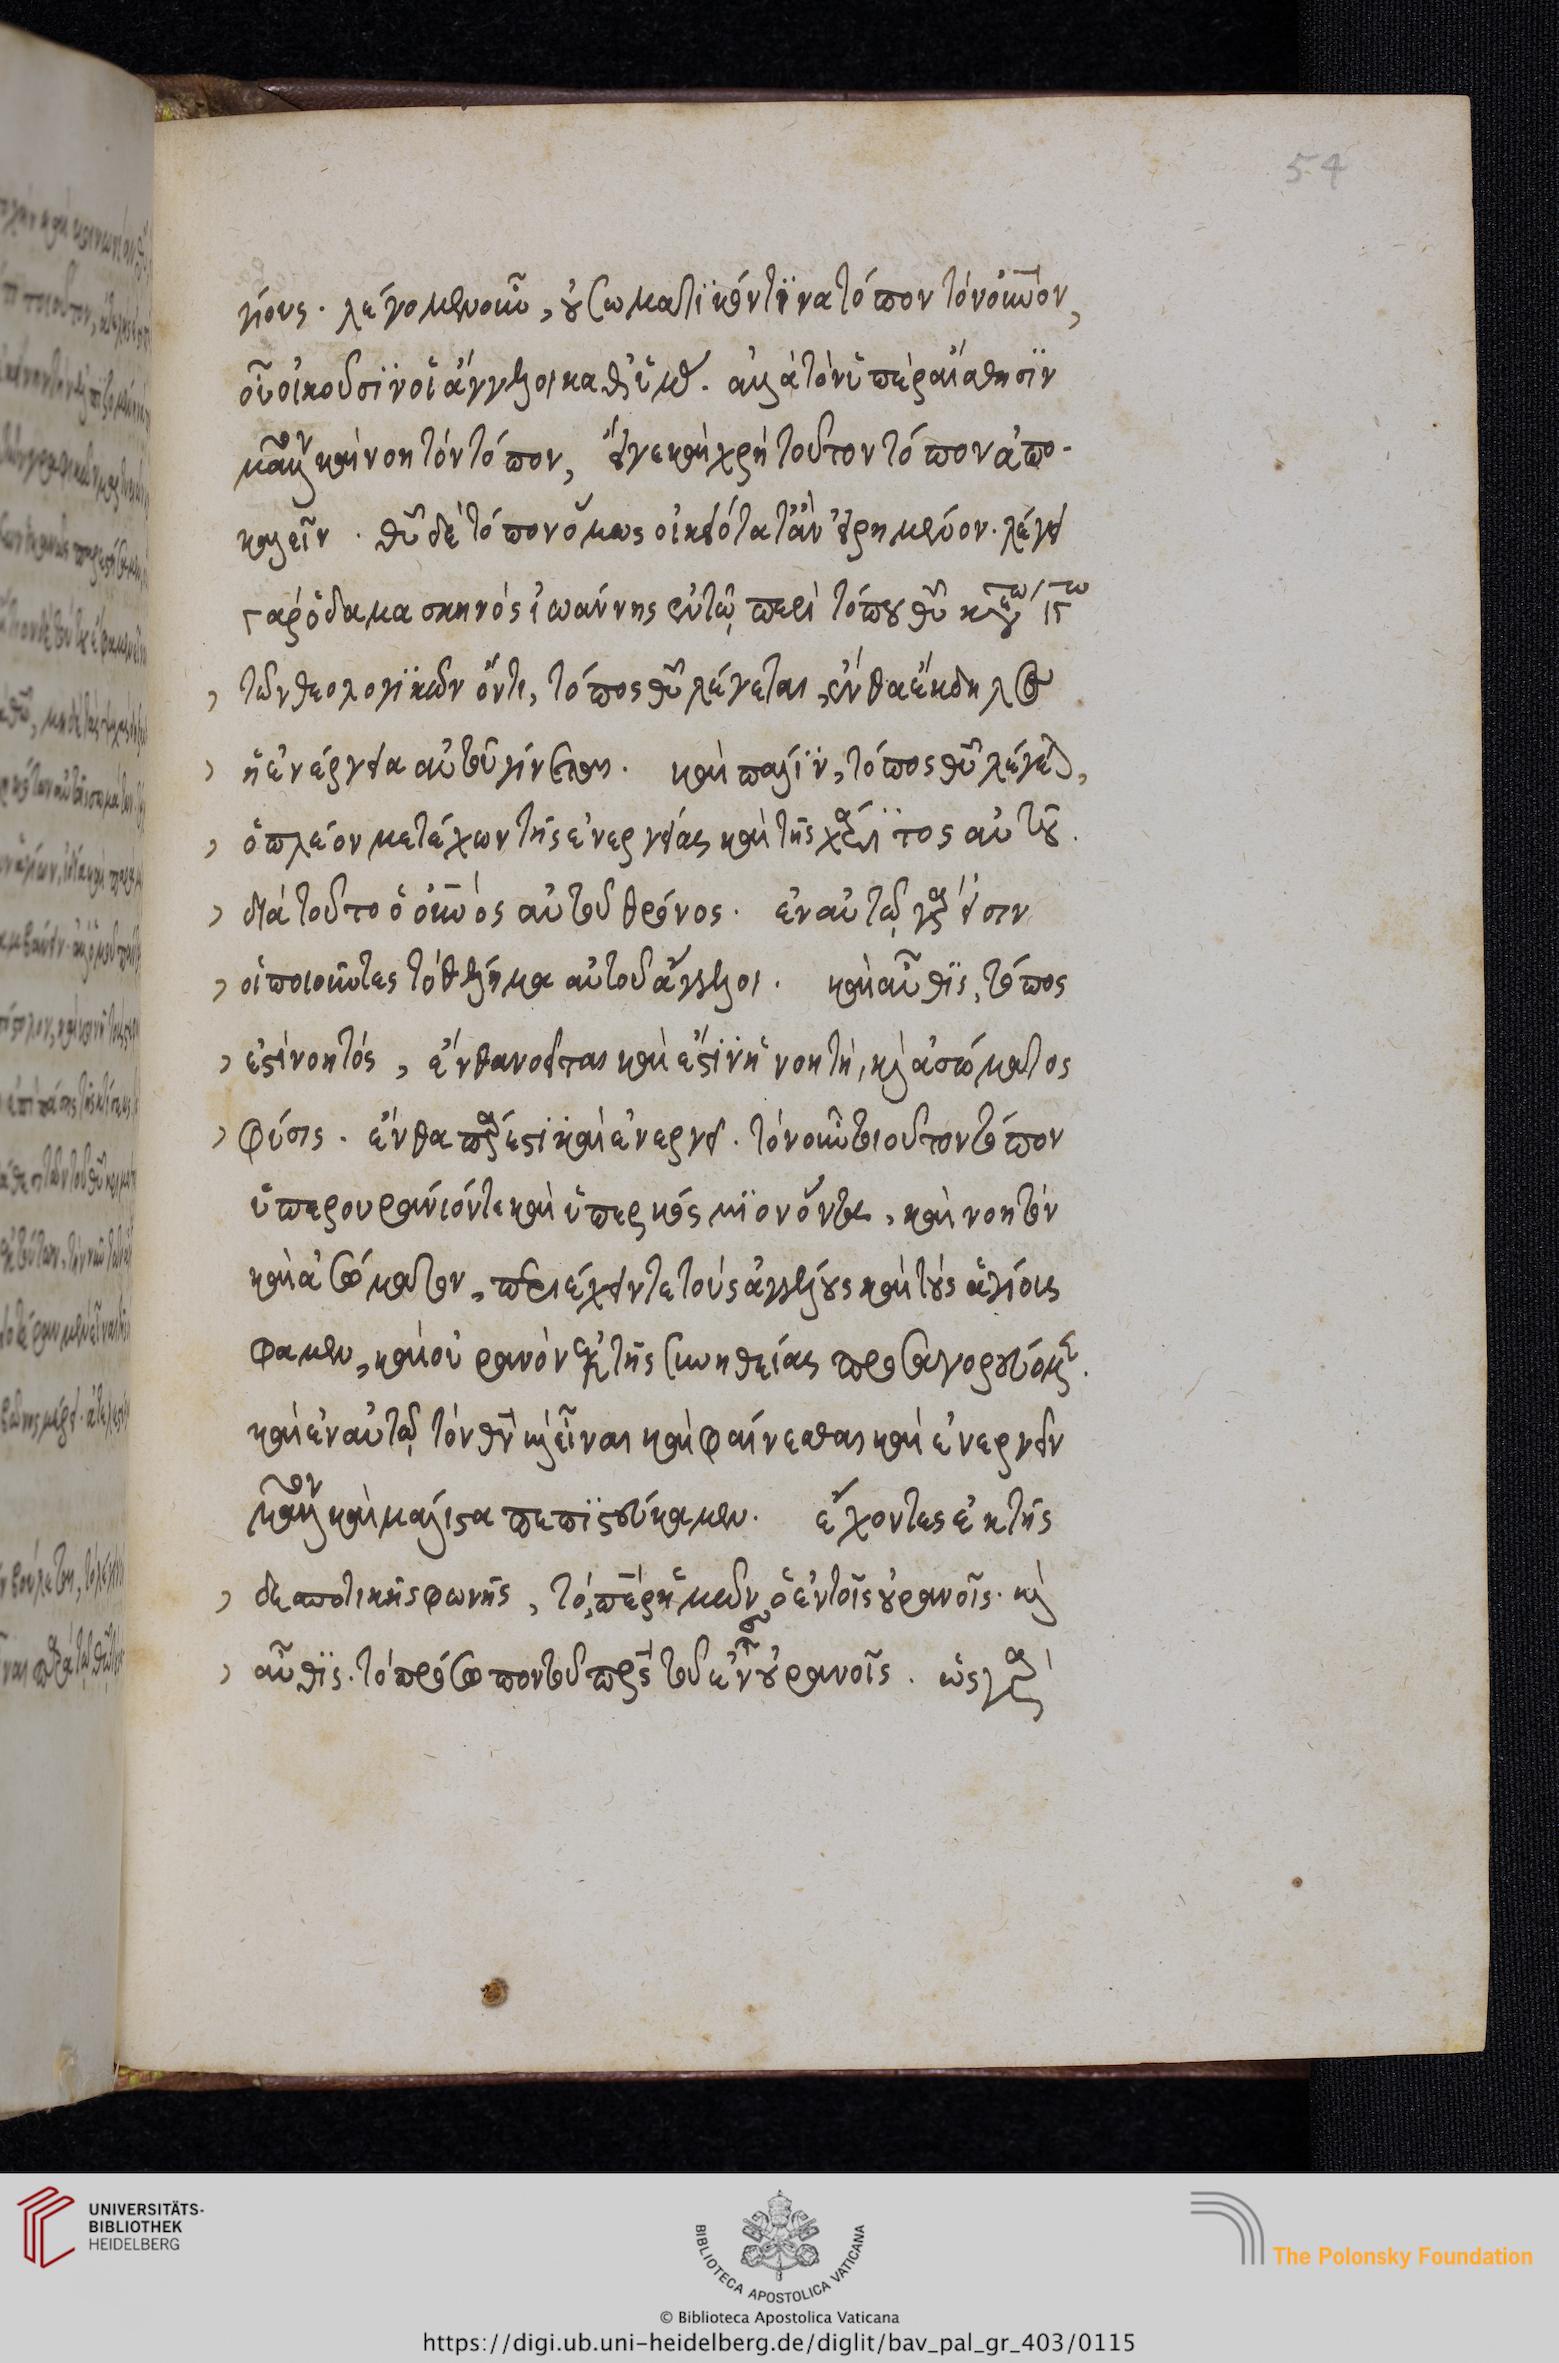 54
γίους. λέγομεν οὖν, οὐ σωματικόν τινα τόπον τὸν οὐνον,
οὗ οἰκοῦσϊν οἱ ἄγγελοι καθ' ἡμᾶς. ἀλλὰ τὸν ὑπὲρ αἴσθησϊν
μᾶλλον καὶ νοητὸν τόπον, εἴγε καὶ χρὴ τοῦτον τόπον ἀπο-
καλεῖν. θῦ δὲ τόπον ὅμως οἰκειότατ' ἂν εἰρημένον. λέγει
γὰρ ὁ δαμασκηνὸς ἰωάννης ἐν τῷ περὶ τόπου θῦ κεφαλαίω ιγω
τῶν θεολογϊκῶν ὅντι, τόπος θῦ λέγεται, ἔνθα ἔκδηλος
ἡ ἐνέργεια αὐτοῦ γίνεται. καὶ πάλϊν, τόπος θῦ λέγεται,
ὁ πλέον μετέχων τῆς ἐνεργείας καὶ τῆς χάριτος αὐτοῦ.
διὰ τοῦτο ὁ οὐνὸς αὐτοῦ θρόνος. ἐν αὐτῷ γάρ εἰσιν
οἱ ποιοῦντες τὸ θέλημα αὐτοῦ ἄγγελοι. καὶ αὖθϊς, τόπος
ἐστὶ νοητός, ἔνθα νοεῖται καὶ ἔστϊν ἡ νοητὴ, καὶ ἀσώματος
φύσις. ἔνθα πάρεστι καὶ ἐνεργεῖ. τὸν οὖν τοιοῦτον τόπον
ὑπερουράνιόν τε καὶ ὑπερκόσμϊον ὄντα, καὶ νοητὸν
καὶ ἀσώματον, περιέχειν τε τοὺς ἀγγέλους καὶ τοὺς ἁγίους
φαμεν, καὶ οὐρανὸν ἐκ τῆς συνηθείας προσαγορεύομεν.
καὶ ἐν αὐτῷ τὸν θν καὶ εἶναι καὶ φαίνεσθαι καὶ ἐνεργεῖν
μᾶλλον καὶ μάλιστα πεπϊστεύκαμεν. ἔχοντες ἐκ τῆς
δεσποτικῆς φωνῆς, τό, περ ἡμῶν ὁ ἐν τοῖς οὐρανοῖς. καὶ
αὖθϊς. τὸ πρόσωπον τοῦ πρς τοῦ ἐν τοῖς οὐρανοῖς. ὡς γὰρ
UNIVERSITÄTS-
BIBLIOTHEK
HEIDELBERG
BIBLIOTECA APOSTOLICA VATICANA
The Polonsky Foundation
© Biblioteca Apostolica Vaticana
https://digi.ub.uni-heidelberg.de/diglit/bav_pal_gr_403/0115